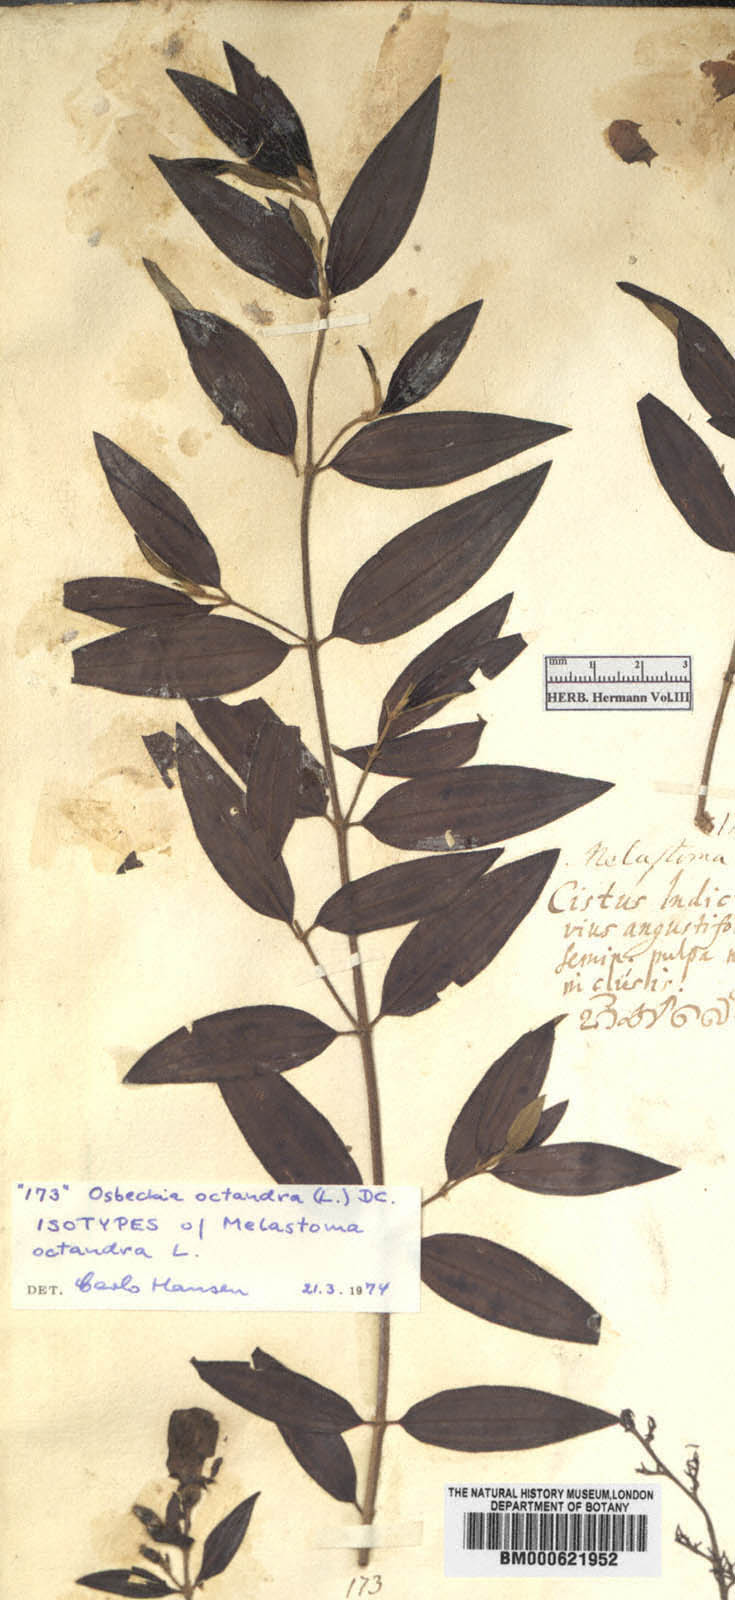 mm 1 2 3
HERB. Hermann Vol.III
Melastoma
Cistus Indic
vius angustifo
semin. pulpa
"173" Osbeckia octandra (L.) DC.
ISOTYPES of Melastoma
octandra L.
DET. Carlo Hansen 21.3.1974
THE NATURAL HISTORY MUSEUM, LONDON
DEPARTMENT OF BOTANY
BM000621952
173